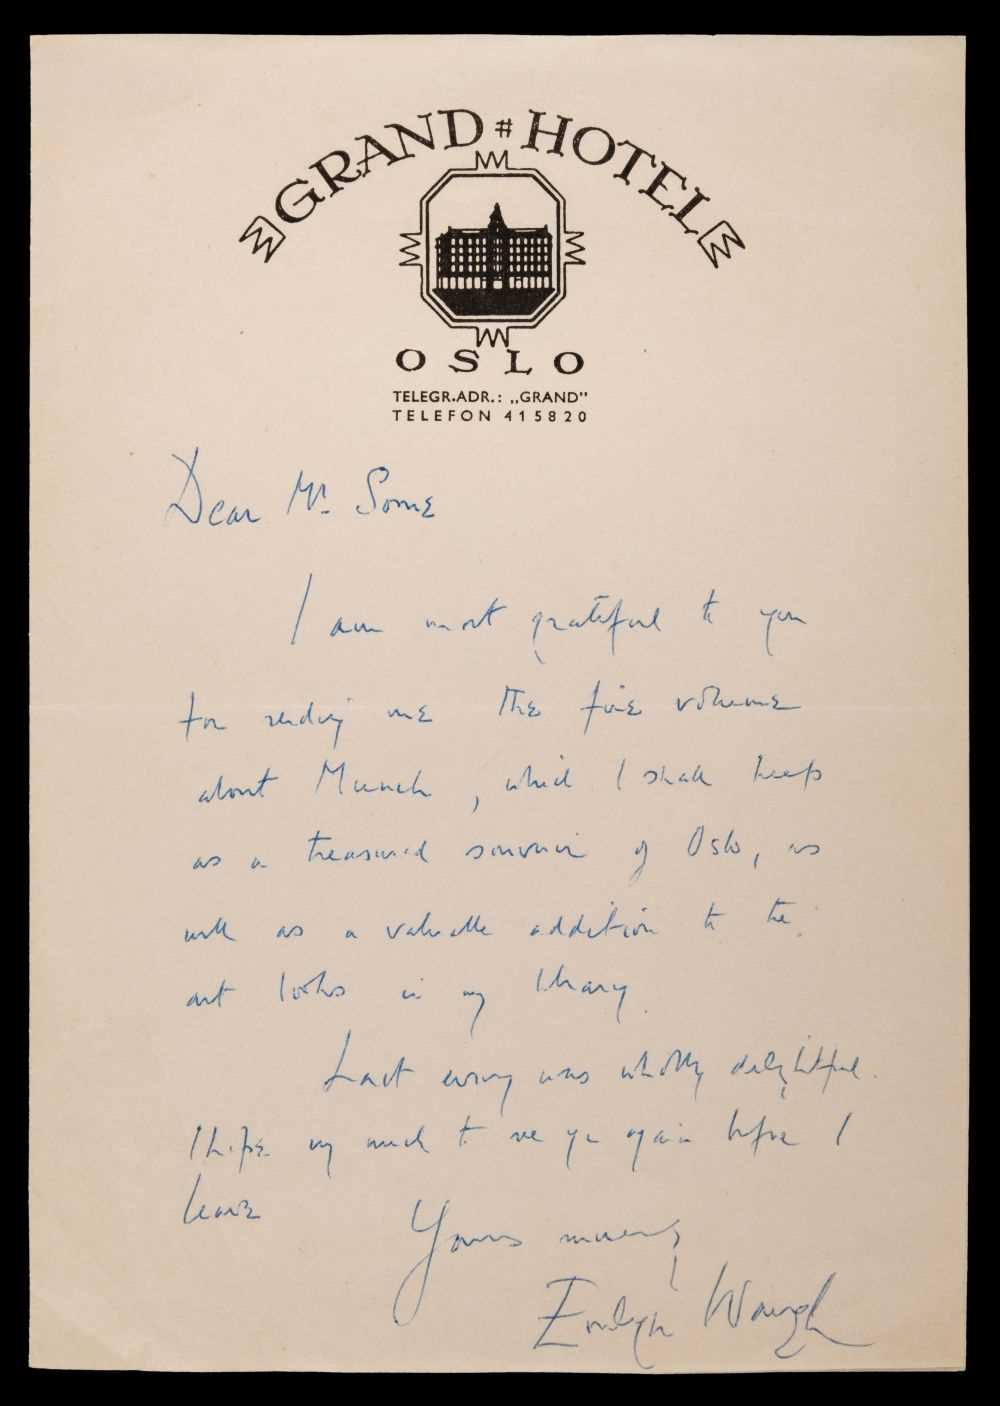 GRAND # HOTEL
OSLO
TELEGR.ADR.: „GRAND"
TELEFON 415820
Dear Mr. Somme
I am most grateful to you
for sending me the fine volume
about Munch, which I shall keep
as a treasured souvenir of Oslo, as
well as a valuable addition to the
art books in my library.
Last evening was wholly delightful.
I hope very much to see you again before I
leave
Yours sincerely
Evelyn Waugh